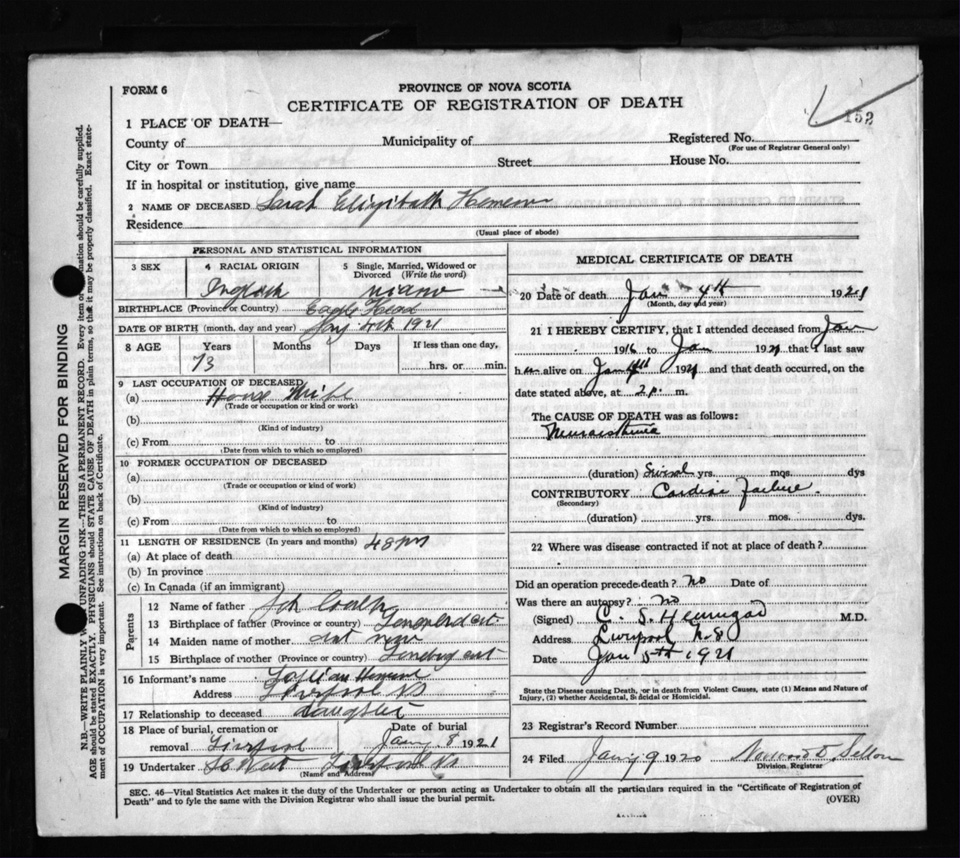 FORM 6
PROVINCE OF NOVA SCOTIA
CERTIFICATE OF REGISTRATION OF DEATH
152
1 PLACE OF DEATH—
County of Municipality of Registered No.
(For use of Registrar General only)
City or Town Street House No.
If in hospital or institution, give name
2 NAME OF DECEASED Sarah Elizibath
Residence
(Usual place of abode)
PERSONAL AND STATISTICAL INFORMATION
3 SEX 4 RACIAL ORIGIN 5 Single, Married, Widowed or Divorced (Write the word)
English
BIRTHPLACE (Province or Country) Eagle Head
DATE OF BIRTH (month, day and year) 4th 1921
8 AGE Years Months Days If less than one day,
73 hrs. or min.
9 LAST OCCUPATION OF DECEASED
(a) House Wife
(Trade or occupation or kind or work)
(b)
(Kind of industry)
(c) From to
(Date from which to which so employed)
10 FORMER OCCUPATION OF DECEASED
(a)
(Trade or occupation or kind of work)
(b)
(Kind of industry)
(c) From to
(Date from which to which so employed)
11 LENGTH OF RESIDENCE (In years and months) 48
(a) At place of death
(b) In province
(c) In Canada (if an immigrant)
Parents
12 Name of father
13 Birthplace of father (Province or country)
14 Maiden name of mother
15 Birthplace of mother (Province or country)
16 Informant's name
Address Liverpool NS
17 Relationship to deceased daughter
18 Place of burial, cremation or removal Liverpool Date of burial Jany 8 1921
19 Undertaker Liverpool NS
(Name and Address)
MEDICAL CERTIFICATE OF DEATH
20 Date of death Jan 4th 1921
(Month, day and year)
21 I HEREBY CERTIFY, that I attended deceased from Jan
1916 to Jan 1921 that I last saw
her alive on Jan 4th 1921 and that death occurred, on the
date stated above, at 2 p. m.
The CAUSE OF DEATH was as follows:
Neurasthenia
(duration) yrs. mos. dys
CONTRIBUTORY Cardiac Failure.
(Secondary)
(duration) yrs. mos. dys.
22 Where was disease contracted if not at place of death?
Did an operation precede death? no Date of
Was there an autopsy? no
(Signed) C. S. Hennigar M.D.
Address Liverpool N.S
Date Jan 5th 1921
State the Disease causing Death, or in death from Violent Causes, state (1) Means and Nature of
Injury, (2) whether Accidental, Suicidal or Homicidal.
23 Registrar's Record Number
24 Filed Jany 9 1920
Division Registrar
SEC. 46—Vital Statistics Act makes it the duty of the Undertaker or person acting as Undertaker to obtain all the particulars required in the "Certificate of Registration of
Death" and to fyle the same with the Division Registrar who shall issue the burial permit.
(OVER)
MARGIN RESERVED FOR BINDING
N.B.—WRITE PLAINLY UNFADING INK—THIS IS A PERMANENT RECORD. Every item of should be carefully supplied.
AGE should be stated EXACTLY. PHYSICIANS should STATE CAUSE OF DEATH in plain terms, so that it may be properly classified. Exact state-
ment of OCCUPATION is very important. See instructions on back of Certificate.